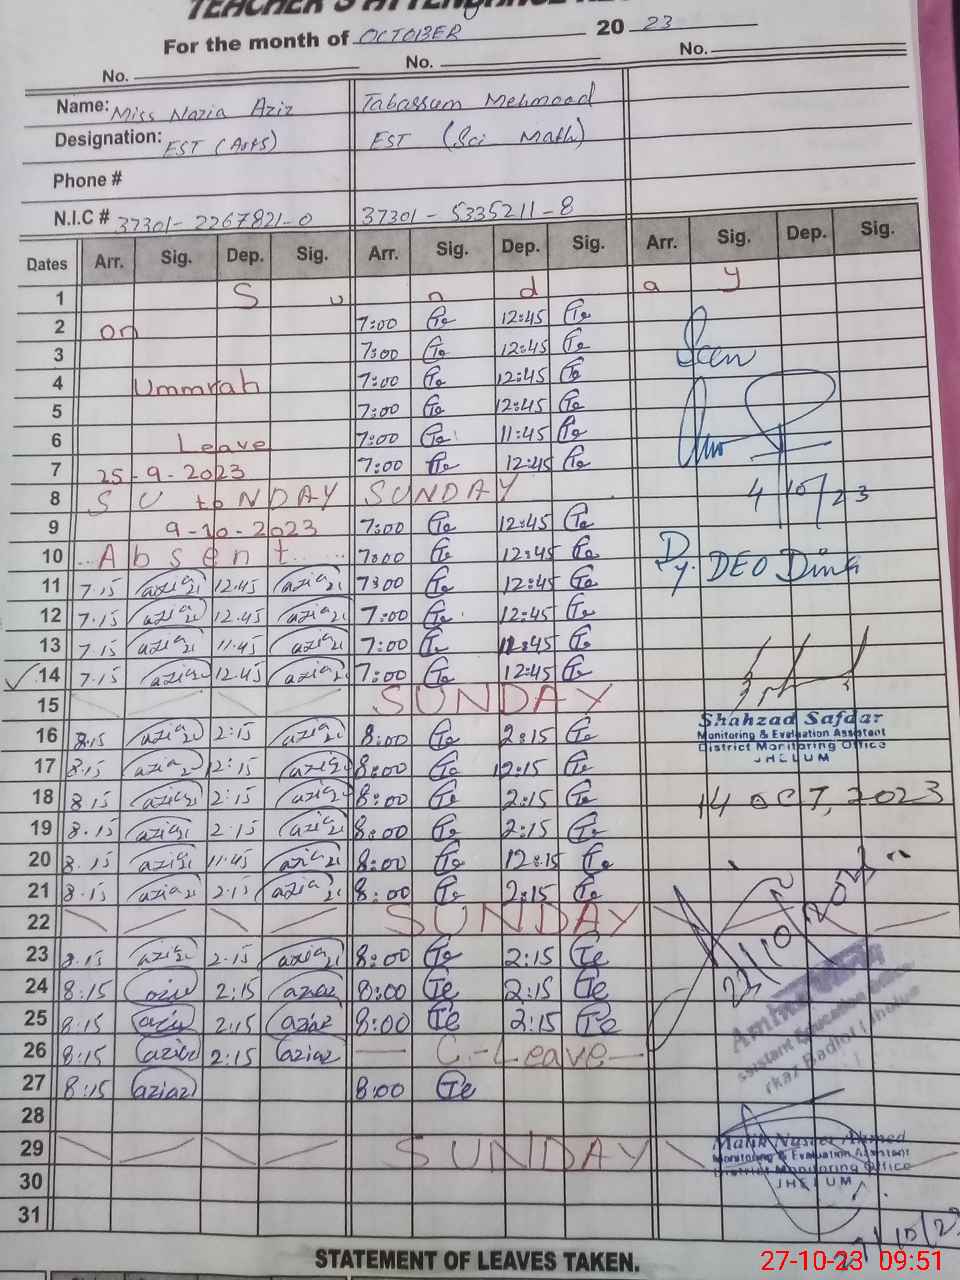 TEACHER'S ATTENDANCE RE
For the month of OCTOBER 20 23
No. No. No.
Name: Miss Nazia Aziz Tabassum Mehmood
Designation: EST (Arts) EST (Sci Math)
Phone #
N.I.C # 37301-2267821-0 37301-5335211-8
Dates Arr. Sig. Dep. Sig. Arr. Sig. Dep. Sig. Arr. Sig. Dep. Sig.
1 S u n d a y
2 on 7:00 Te 12:45 Te
3 7:00 Te 12:45 Te
4 Ummrah 7:00 Te 12:45 Te
5 7:00 Te 12:45 Te
6 Leave 7:00 Te 11:45 Te
7 25-9-2023 7:00 Te 12:45 Te
8 SU to NDAY SUNDAY 4/10/23
9 9-10-2023 7:00 Te 12:45 Te
10 Absent 7:00 Te 12:45 Te Dy. DEO Dina
11 7.15 aziz 12.45 aziz 7:00 Te 12:45 Te
12 7.15 aziz 12.45 aziz 7:00 Te 12:45 Te
13 7.15 aziz 11.45 aziz 7:00 Te 11:45 Te
14 7.15 aziz 12.45 aziz 7:00 Te 12:45 Te
15 SUNDAY
Shahzad Safdar
16 8.15 aziz 2:15 aziz 8:00 Te 2:15 Te Monitoring & Evaluation Assistant
District Monitoring Office
17 8.15 aziz 12:15 aziz 8:00 Te 12:15 Te JHELUM
18 8.15 aziz 2:15 aziz 8:00 Te 2:15 Te 14 OCT, 2023
19 8.15 aziz 2.15 aziz 8:00 Te 2:15 Te
20 8.15 aziz 11.45 aziz 8:00 Te 12:15 Te
21 8.15 aziz 2.15 aziz 8:00 Te 2:15 Te
22 SUNDAY
23 8.15 aziz 2.15 aziz 8:00 Te 2:15 Te
24 8:15 aziz 2:15 aziz 8:00 Te 2:15 Te
25 8:15 aziz 2:15 aziz 8:00 Te 2:15 Te
26 8:15 aziz 2:15 aziz C.-Leave
27 8:15 aziz 8:00 Te
28
Malik Naseer Ahmed
29 SUNDAY Monitoring & Evaluation Assistant
District Monitoring Office
30 JHELUM
31
27/10/23
STATEMENT OF LEAVES TAKEN.
27-10-23 09:51